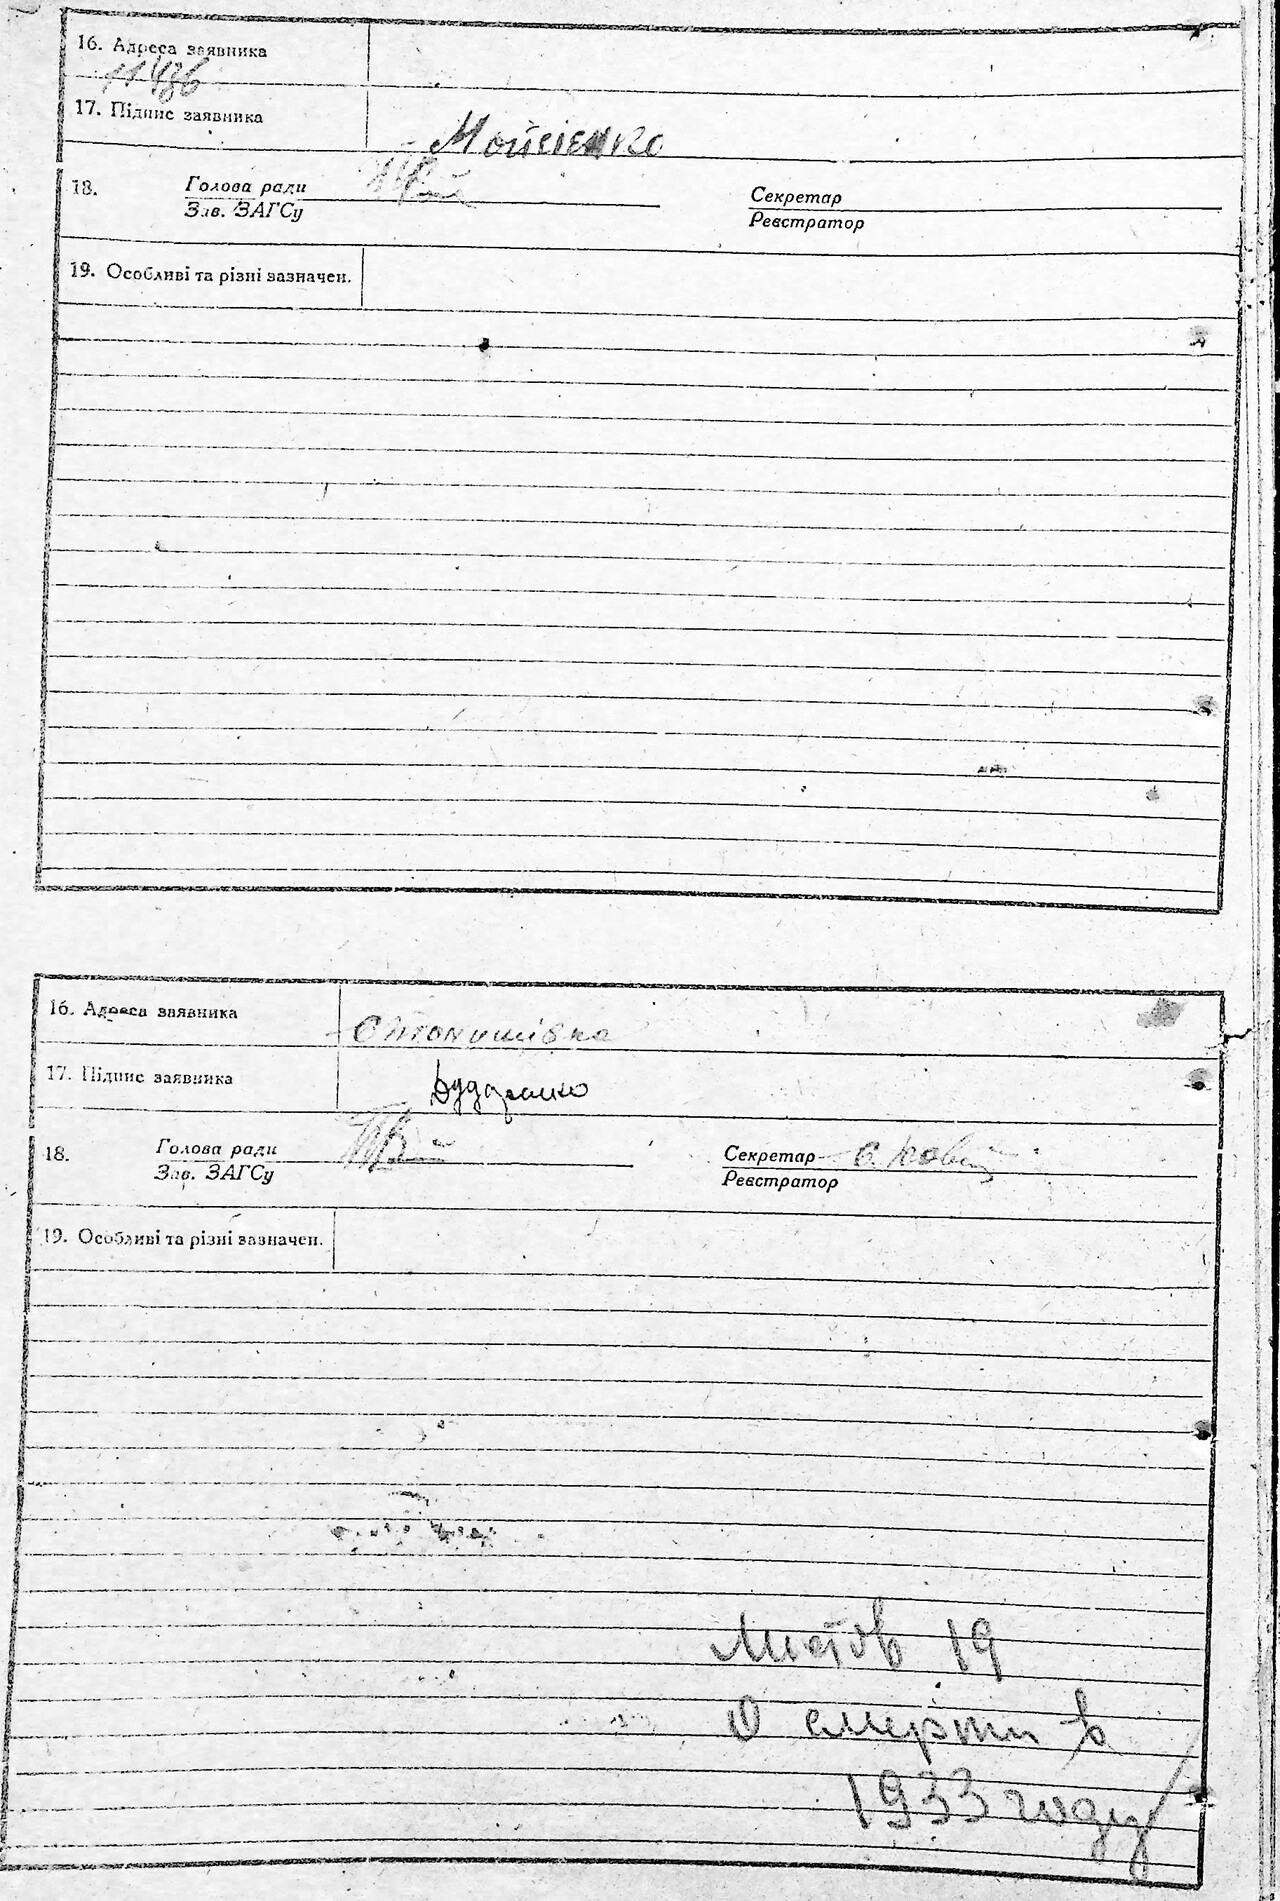 16. Адреса заявника
17. Підпис заявника Мойсієнко
18. Голова ради Секретар
Зав. ЗАГСу Реєстратор
19. Особливі та різні зазначен.
16. Адреса заявника
17. Підпис заявника
18. Голова ради Секретар
Зав. ЗАГСу Реєстратор
19. Особливі та різні зазначен.
Листов 19
О смерти в
1933 году